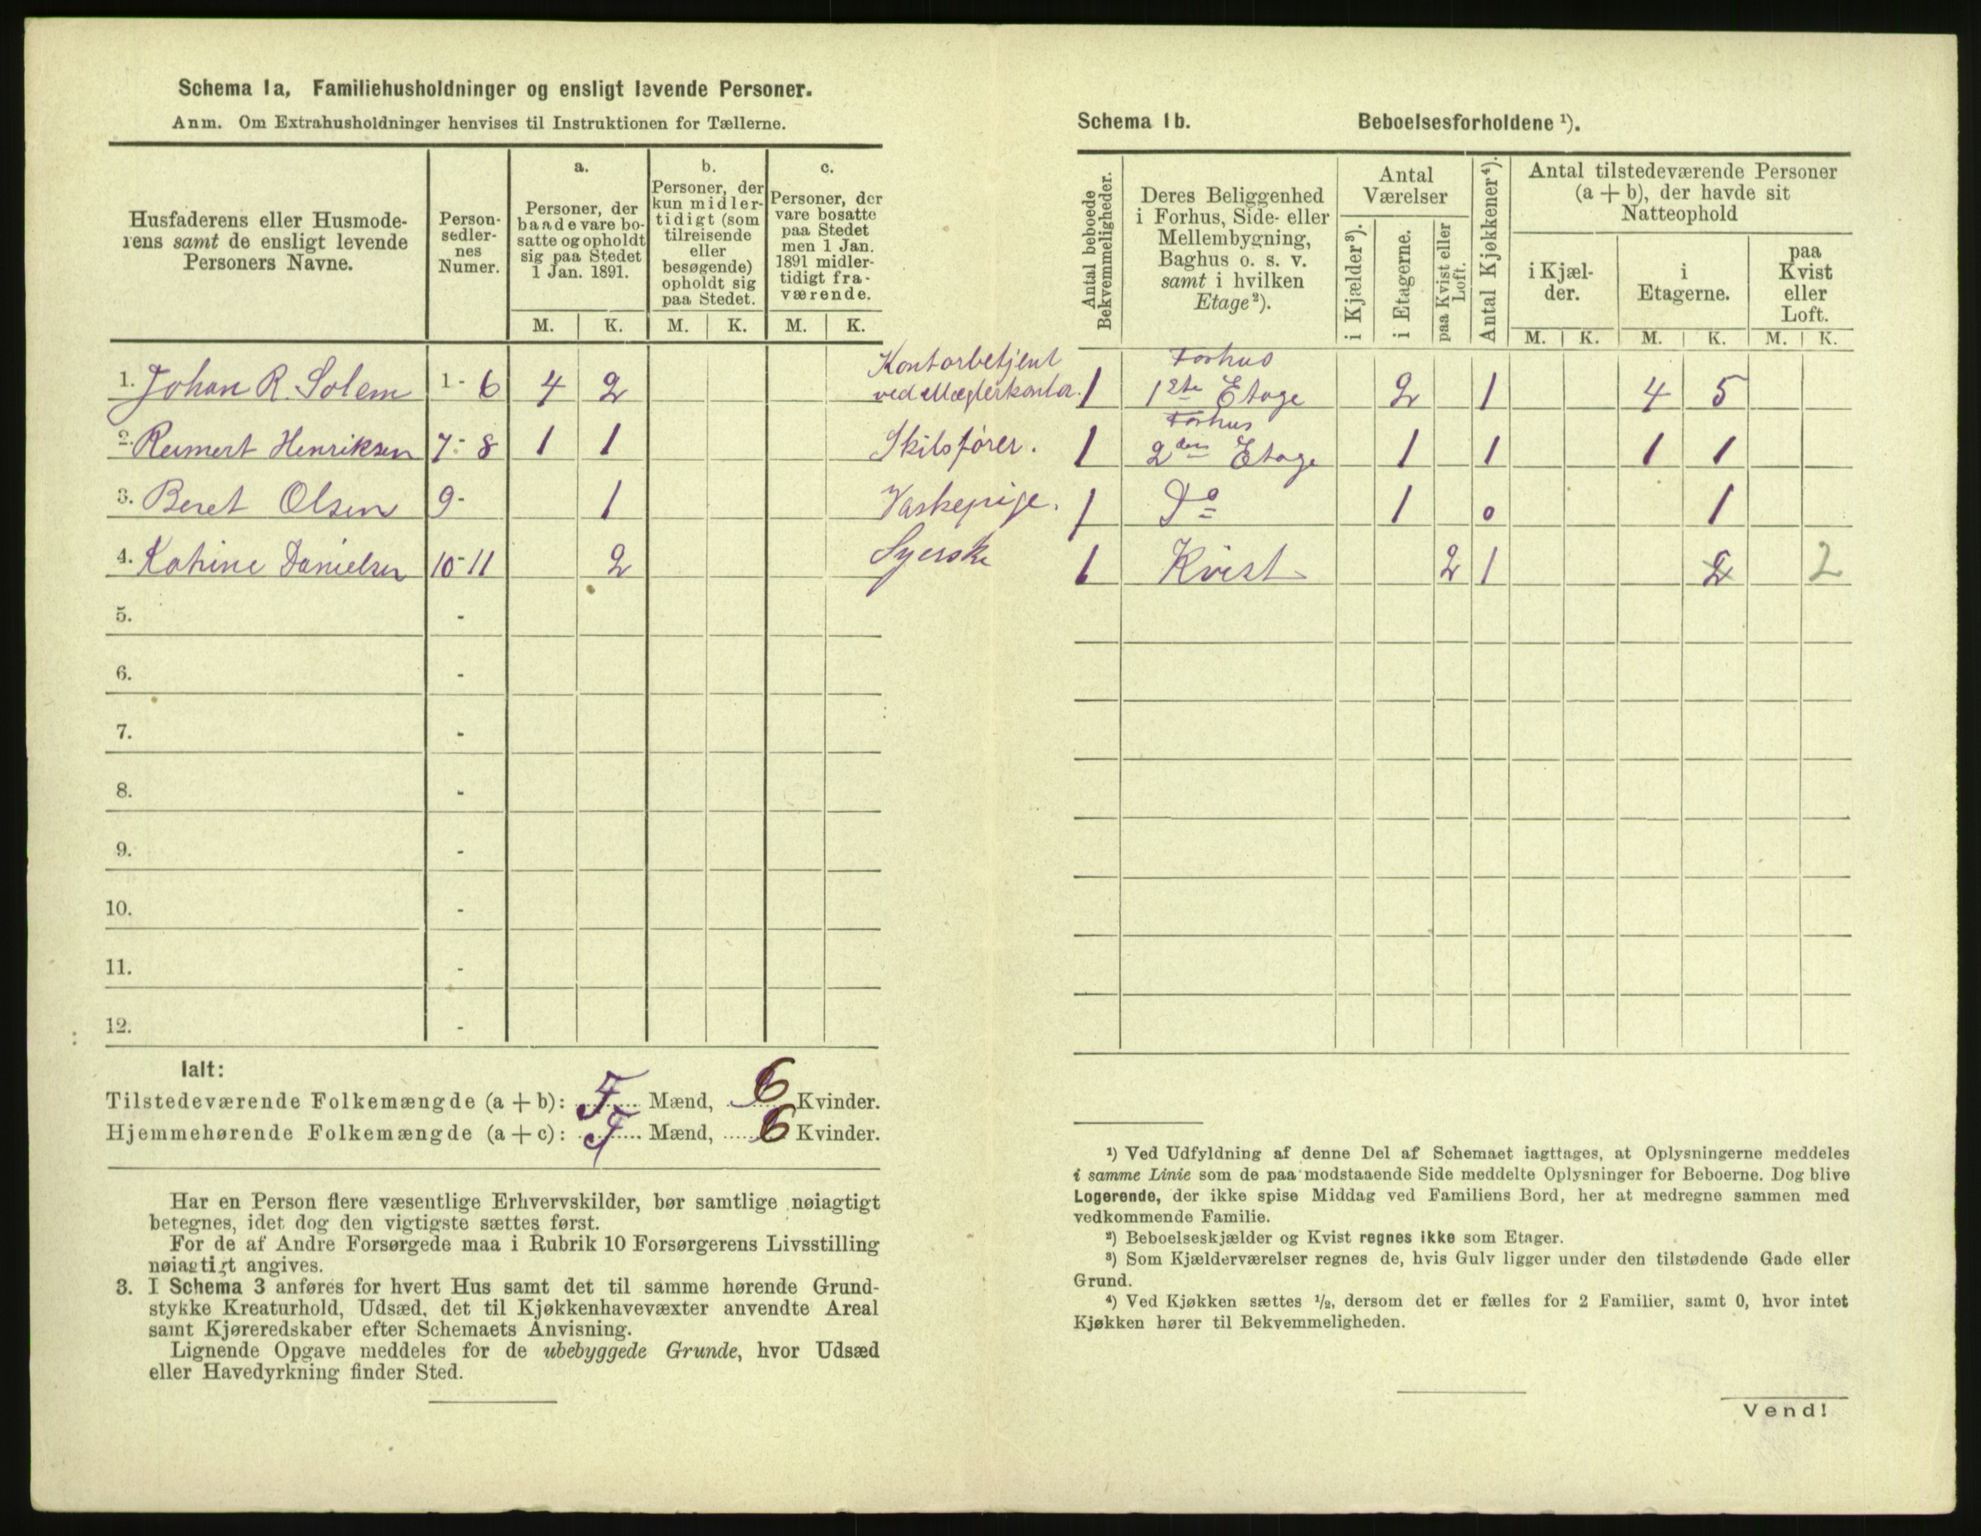 Schema 1a, Familiehusholdninger og ensligt levende Personer.
Anm. Om Extrahusholdninger henvises til Instruktionen for Tællerne.
Husfaderens eller Husmode-
rens samt de ensligt levende
Personers Navne.
Person-
sedler-
nes
Numer.
a.
Personer, der
baade vare bo-
satte og opholdt
sig paa Stedet
1 Jan. 1891.
b.
Personer, der
kun midler-
tidigt (som
tilreisende
eller
besøgende)
opholdt sig
paa Stedet.
c.
Personer, der
vare bosatte
paa Stedet
men 1 Jan.
1891 midler-
tidigt fra-
værende.
M. K. M. K. M. K.
1. Johan R. Solem 1 - 6 4 2 Kontorbetjent
ved Mæglerkontor.
2. Reimert Henriksen 7 - 8 1 1 Skibsfører.
3. Beret Olsen 9 - 1 Vaskepige.
4. Katrine Danielsen 10 - 11 2 Syerske
5. -
6. -
7. -
8. -
9. -
10. -
11. -
12. -
Ialt:
Tilstedeværende Folkemængde (a + b): Mænd, 6 Kvinder.
Hjemmehørende Folkemængde (a + c): Mænd, 6 Kvinder.
Har en Person flere væsentlige Erhvervskilder, bør samtlige nøiagtigt
betegnes, idet dog den vigtigste sættes først.
For de af Andre Forsørgede maa i Rubrik 10 Forsørgerens Livsstilling
nøiagtigt angives.
3. I Schema 3 anføres for hvert Hus samt det til samme hørende Grund-
stykke Kreaturhold, Udsæd, det til Kjøkkenhavevæxter anvendte Areal
samt Kjøreredskaber efter Schemaets Anvisning.
Lignende Opgave meddeles for de ubebyggede Grunde, hvor Udsæd
eller Havedyrkning finder Sted.
Schema 1b. Beboelsesforholdene ¹).
Antal beboede
Bekvemmeligheder.
Deres Beliggenhed
i Forhus, Side- eller
Mellembygning,
Baghus o. s. v.
samt i hvilken
Etage²).
Antal
Værelser
i Kjælder³).
i Etagerne.
paa Kvist eller
Loft.
Antal Kjøkkener⁴).
Antal tilstedeværende Personer
(a + b), der havde sit
Natteophold
i Kjæl-
der.
i
Etagerne.
paa
Kvist
eller
Loft.
M. K. M. K. M. K.
Forhus
1 1ste Etage 2 1 4 5
Forhus
1 2den Etage 1 1 1 1
1 Do 1 0 1
1 Kvist 2 1 2 2
¹) Ved Udfyldning af denne Del af Schemaet iagttages, at Oplysningerne meddeles
i samme Linie som de paa modstaaende Side meddelte Oplysninger for Beboerne. Dog blive
Logerende, der ikke spise Middag ved Familiens Bord, her at medregne sammen med
vedkommende Familie.
²) Beboelseskjælder og Kvist regnes ikke som Etager.
³) Som Kjælderværelser regnes de, hvis Gulv ligger under den tilstødende Gade eller
Grund.
⁴) Ved Kjøkken sættes ½, dersom det er fælles for 2 Familier, samt 0, hvor intet
Kjøkken hører til Bekvemmeligheden.
Vend!